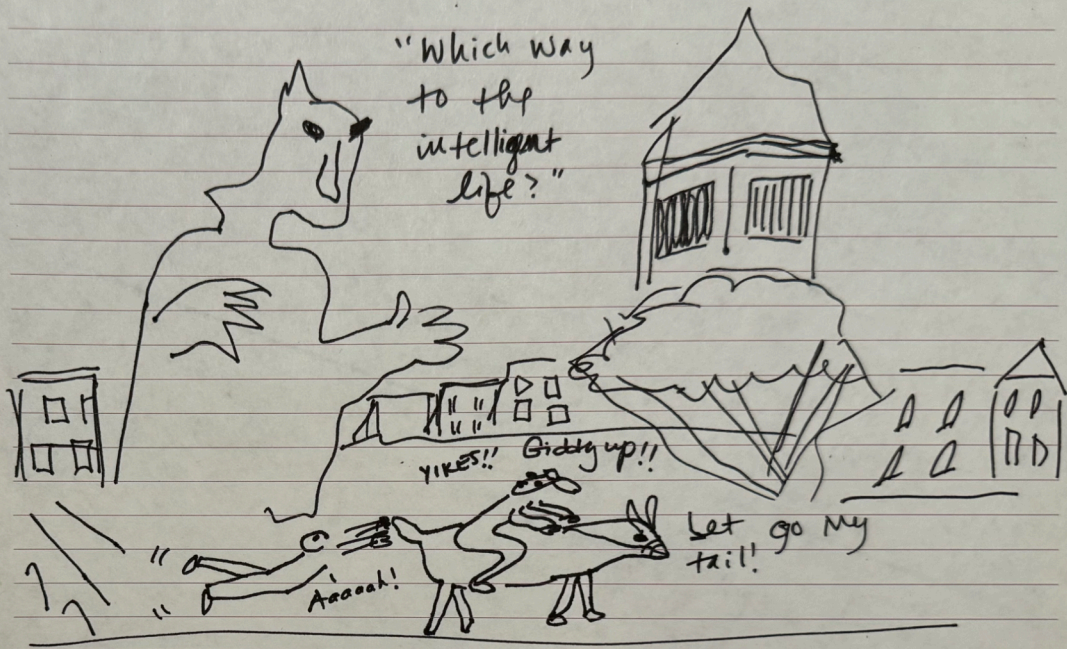 "Which way
to the
intelligent
life?"
YIKES!! Giddy up!!
Let go my
tail!
Aaaaah!